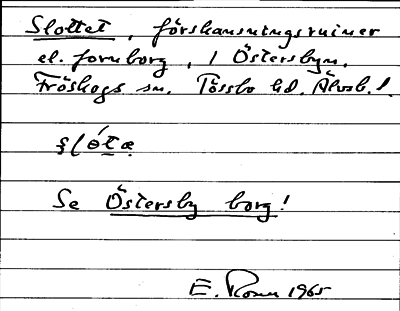 Slottet, förskansningsruiner
el. fornborg, i Östersbyn.
Fröskogs sn. Tössbo hd. Älvsb. l.
Se Östersby borg!
E. 1965